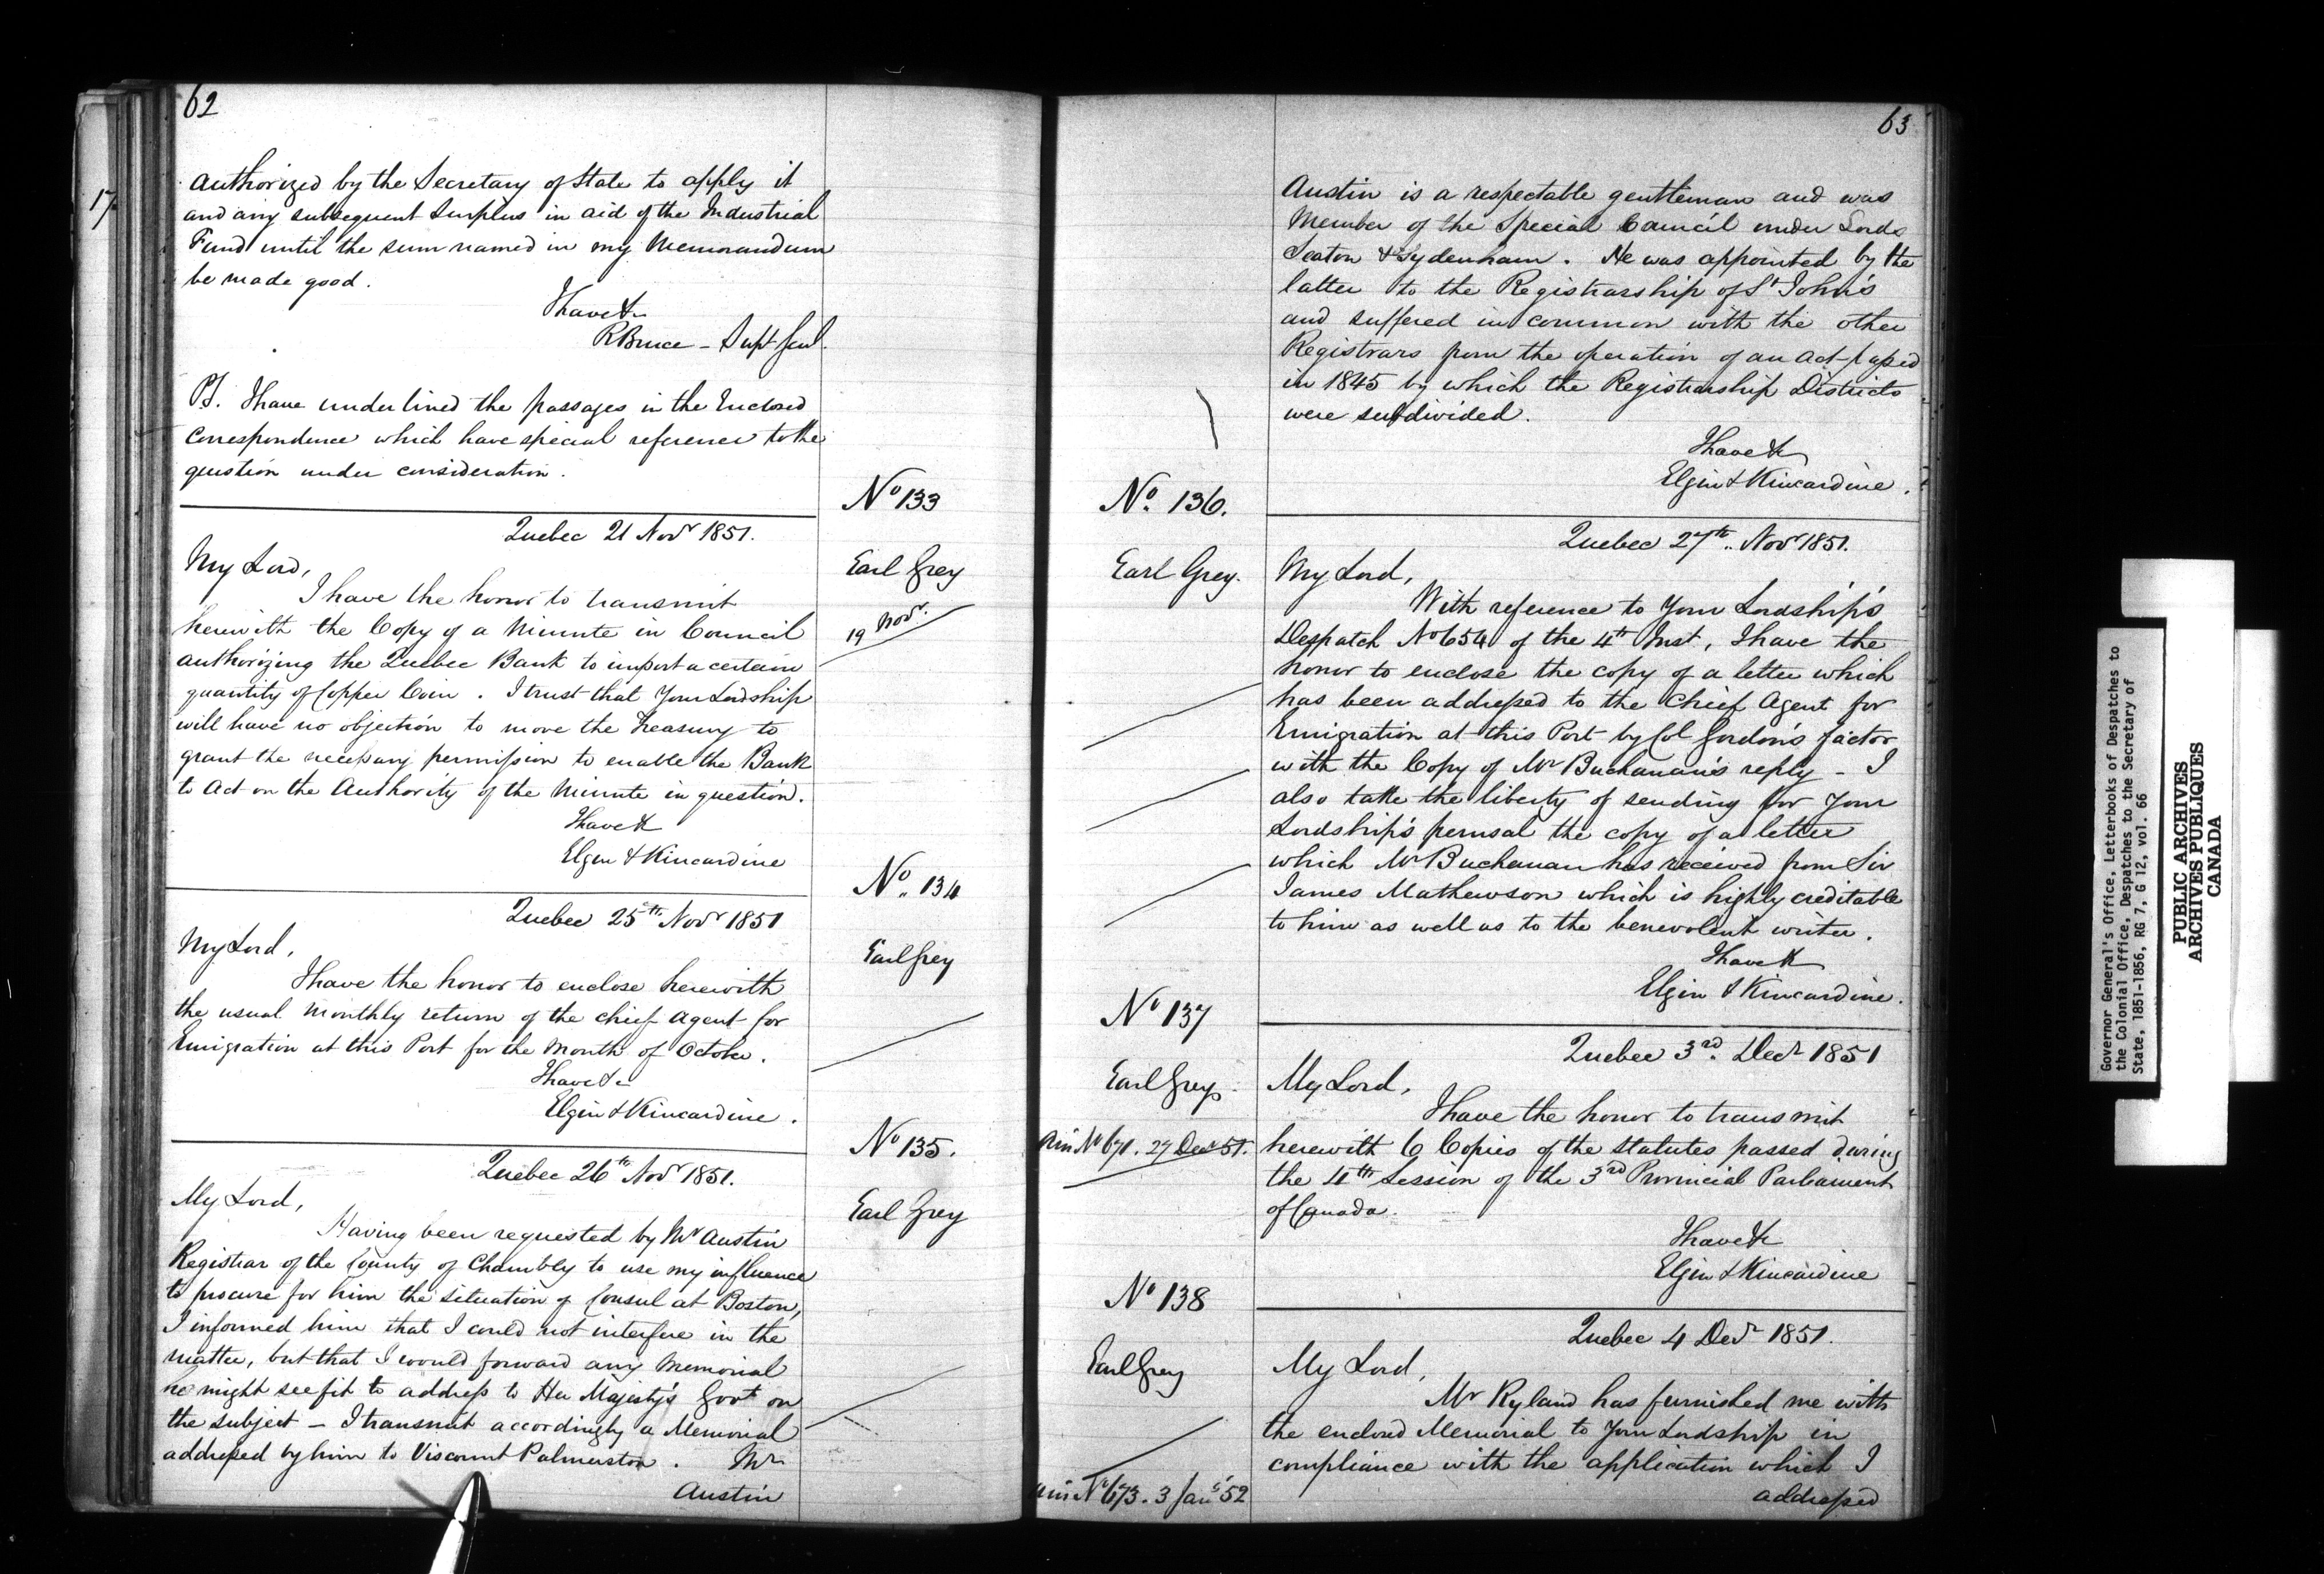 62
17
authorized by the Secretary of State to apply it
and any subsequent Surplus in aid of the Industrial
Fund until the sum named in my Memorandum
be made good.
I have &c
R Bruce - Supt Genl.
PS. I have underlined the passages in the Enclosed
Correspondence which have special reference to the
question under consideration.
No 133
Quebec 21 Novr 1851.
Earl Grey
19 Novr.
My Lord,
I have the honor to transmit
herewith the Copy of a Minute in Council
authorizing the Quebec Bank to import a certain
quantity of Copper Coin. I trust that Your Lordship
will have no objection to move the Treasury to
grant the necessary permission to enable the Bank
to Act on the Authority of the Minute in question.
I have &c
Elgin & Kincardine
No. 134
Quebec 25th Novr 1851
Earl Grey
My Lord,
I have the honor to enclose herewith
the usual Monthly return of the Chief Agent for
Emigration at this Port for the Month of October.
I have &c
Elgin & Kincardine.
No 135.
Quebec 26th Novr 1851.
Earl Grey
My Lord,
Having been requested by Mr Austin
Registrar of the County of Chambly to use my influence
to procure for him the situation of Consul at Boston,
I informed him that I could not interfere in the
matter, but that I would forward any Memorial
he might see fit to address to Her Majesty's Govt on
the subject - I transmit accordingly a Memorial
addressed by him to Viscount Palmerston. Mr
Austin
63
Austin is a respectable gentleman and was
Member of the Special Council under Lords
Seaton & Sydenham. He was appointed by the
latter to the Registrarship of St John's
and suffered in common with the other
Registrars from the operation of an Act passed
in 1845 by which the Registrarship Districts
were subdivided.
I have &c
Elgin & Kincardine.
No. 136.
Quebec 27th. Novr 1851.
Earl Grey.
My Lord,
With reference to Your Lordship's
Despatch No 654 of the 4th Inst, I have the
honor to enclose the copy of a letter which
has been addressed to the Chief Agent for
Emigration at this Port by Col Gordon's factor
with the Copy of Mr Buchanan's reply - I
also take the liberty of sending for Your
Lordship's perusal the copy of a letter
which Mr Buchanan has received from Sir
James Mathewson which is highly creditable
to him as well as to the benevolent writer.
I have &c
Elgin & Kincardine.
No 137
Quebec 3rd. Decr 1851
Earl Grey.
My Lord,
I have the honor to transmit
Ans No 671. 27 Decr 51.
herewith 6 Copies of the Statutes passed during
the 4th Session of the 3rd Provincial Parliament
of Canada.
I have &c
Elgin & Kincardine
No 138
Quebec 4 Decr 1851.
Earl Grey
My Lord,
Mr Ryland has furnished me with
the enclosed Memorial to Your Lordship in
compliance with the application which I
Ans No 673. 3 Jany 52
addressed
Governor General's Office, Letterbooks of Despatches to
the Colonial Office, Despatches to the Secretary of
State, 1851-1856, RG 7, G 12, vol. 66
PUBLIC ARCHIVES
ARCHIVES PUBLIQUES
CANADA